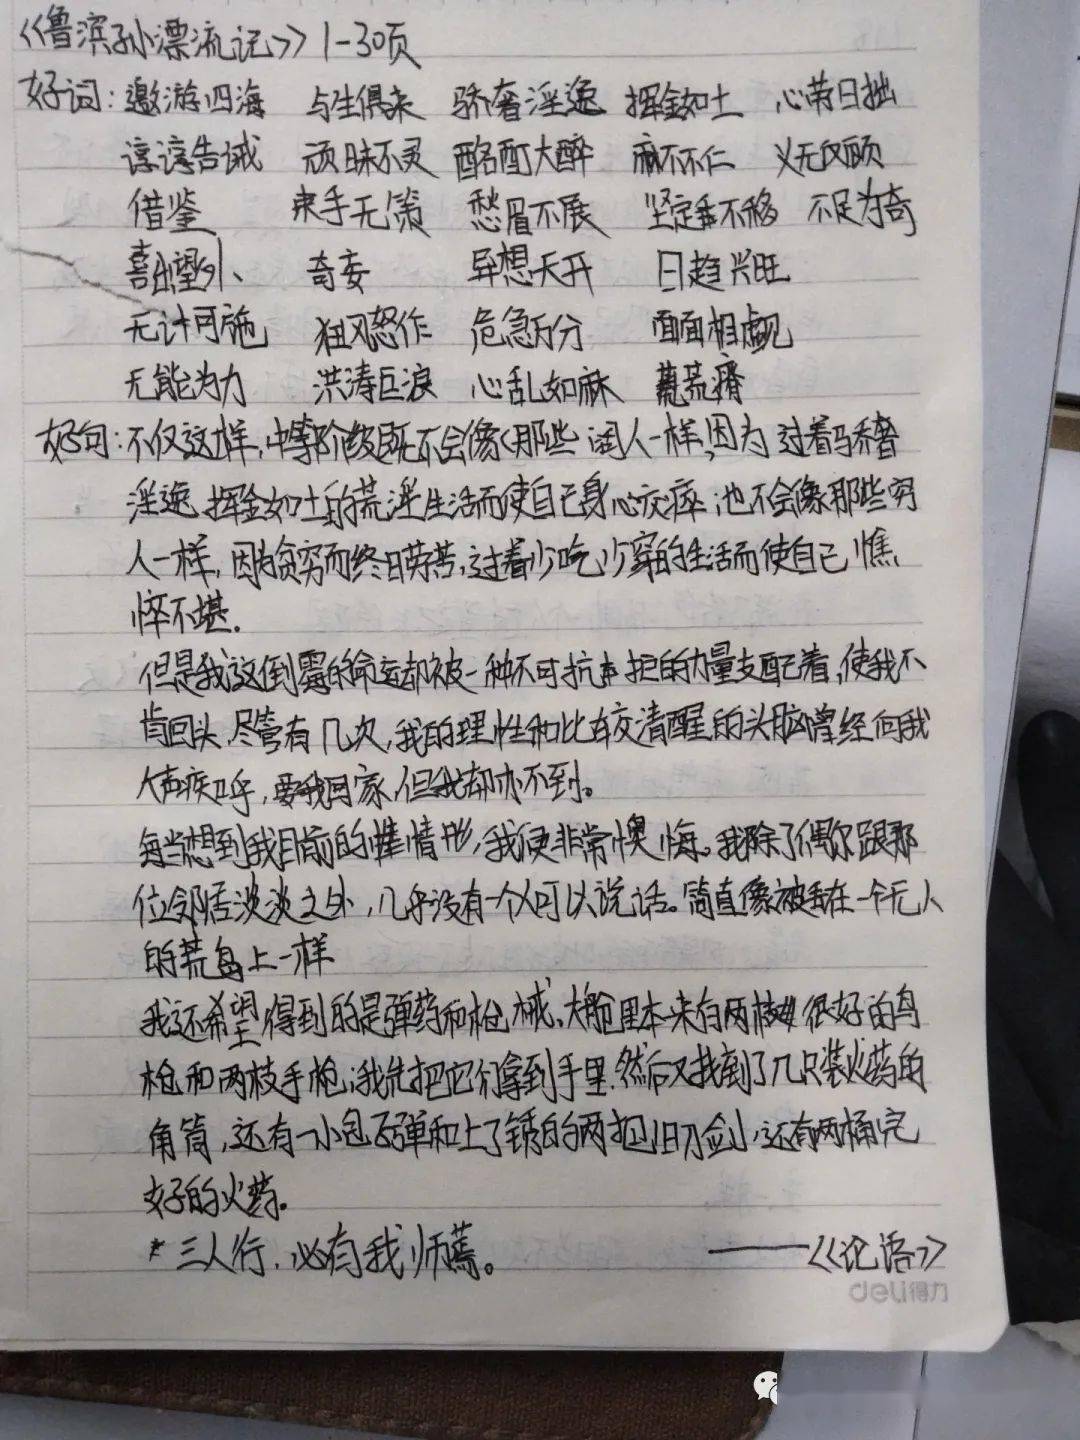 《鲁滨孙漂流记》1-30页
好词：遨游四海 与生俱来 骄奢淫逸 挥金如土 心劳日拙
谆谆告诫 顽昧不灵 酩酊大醉 麻木不仁 义无反顾
借鉴 束手无策 愁眉不展 坚定不移 不足为奇
喜出望外 奇妄 异想天开 日趋兴旺
无计可施 狂风怒作 危急万分 面面相觑
无能为力 洪涛巨浪 心乱如麻 荒瘠
好句：不仅这样,中等阶级既不会像那些阔人一样,因为过着骄奢
淫逸 挥金如土的荒淫生活而使自己身心交瘁；也不会像那些穷
人一样,因为贫穷而终日劳苦,过着少吃少穿的生活而使自己憔
悴不堪.
但是我这倒霉的命运却被一种不可抗拒的力量支配着,使我不
肯回头.尽管有几次,我的理性和比较清醒的头脑曾经向我
大声疾呼,要我回家,但我却办不到。
每当想到我目前的情形,我便非常懊悔。我除了偶尔跟那
位邻居谈谈之外,几乎没有一个人可以说话。简直像被丢在一个无人
的荒岛上一样
我还希望得到的是弹药和枪械,大舱里本来有两枝很好的鸟
枪和两枝手枪；我先把它们拿到手里.然后又找到了几只装火药的
角筒,还有一小包子弹和上了锈的两把旧刀剑,还有两桶完
好的火药。
*三人行,必有我师焉。 ——《论语》
deli得力